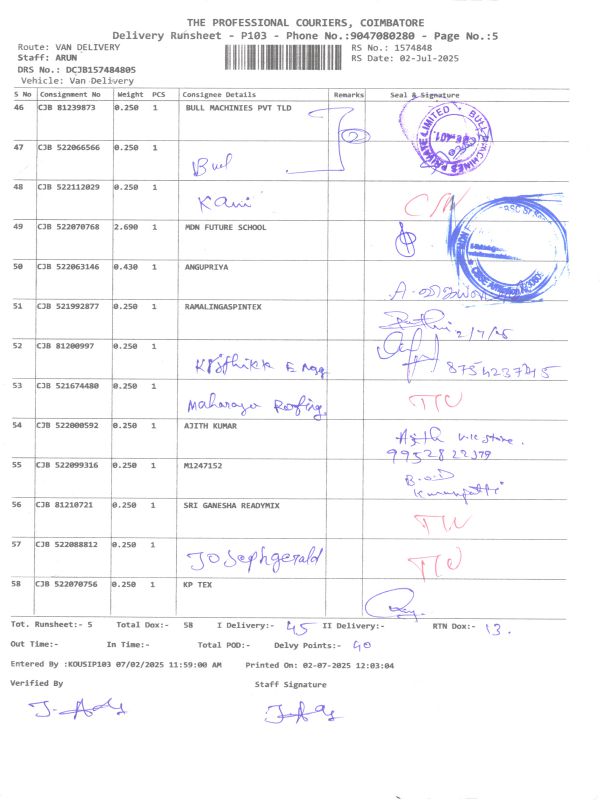 THE PROFESSIONAL COURIERS, COIMBATORE
Delivery Runsheet - P103 - Phone No.:9047080280 - Page No.:5
Route: VAN DELIVERY RS No.: 1574848
Staff: ARUN RS Date: 02-Jul-2025
DRS No.: DCJB157484805
Vehicle: Van Delivery
S No Consignment No Weight PCS Consignee Details Remarks Seal & Signature
46 CJB 81239873 0.250 1 BULL MACHINIES PVT TLD 2
47 CJB 522066566 0.250 1 Bull
48 CJB 522112029 0.250 1 Kani
49 CJB 522070768 2.690 1 MDN FUTURE SCHOOL
50 CJB 522063146 0.430 1 ANGUPRIYA
51 CJB 521992877 0.250 1 RAMALINGASPINTEX 2/7/25
52 CJB 81200997 0.250 1 Krithikk Engg 8754237745
53 CJB 521674480 0.250 1 Maharaja Roofing
54 CJB 522000592 0.250 1 AJITH KUMAR Ajith store.
9952822379
55 CJB 522099316 0.250 1 M1247152
56 CJB 81210721 0.250 1 SRI GANESHA READYMIX
57 CJB 522088812 0.250 1 Josephgerald
58 CJB 522070756 0.250 1 KP TEX
Tot. Runsheet:- 5 Total Dox:- 58 I Delivery:- 45 II Delivery:- RTN Dox:- 13.
Out Time:- In Time:- Total POD:- Delvy Points:- 40
Entered By :KOUSIP103 07/02/2025 11:59:00 AM Printed On: 02-07-2025 12:03:04
Verified By Staff Signature